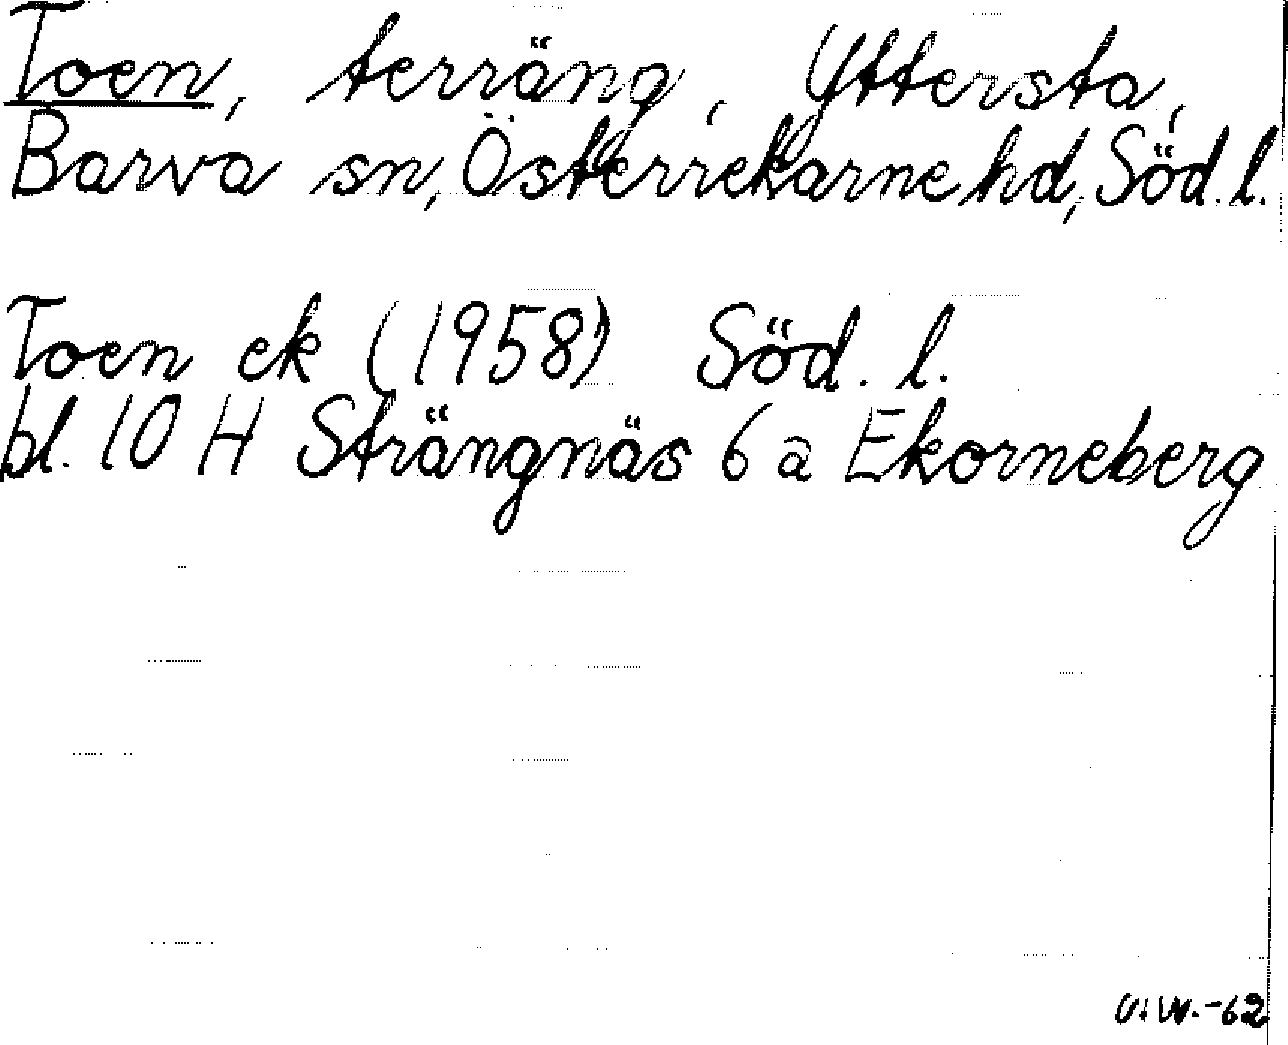 Toen, terräng, Yttersta,
Barva sn, Österrekarne hd, Söd. l.
Toen ek (1958) Söd. l.
bl. 10 H Strängnäs 6 a Ekorneberg
U.W.-62